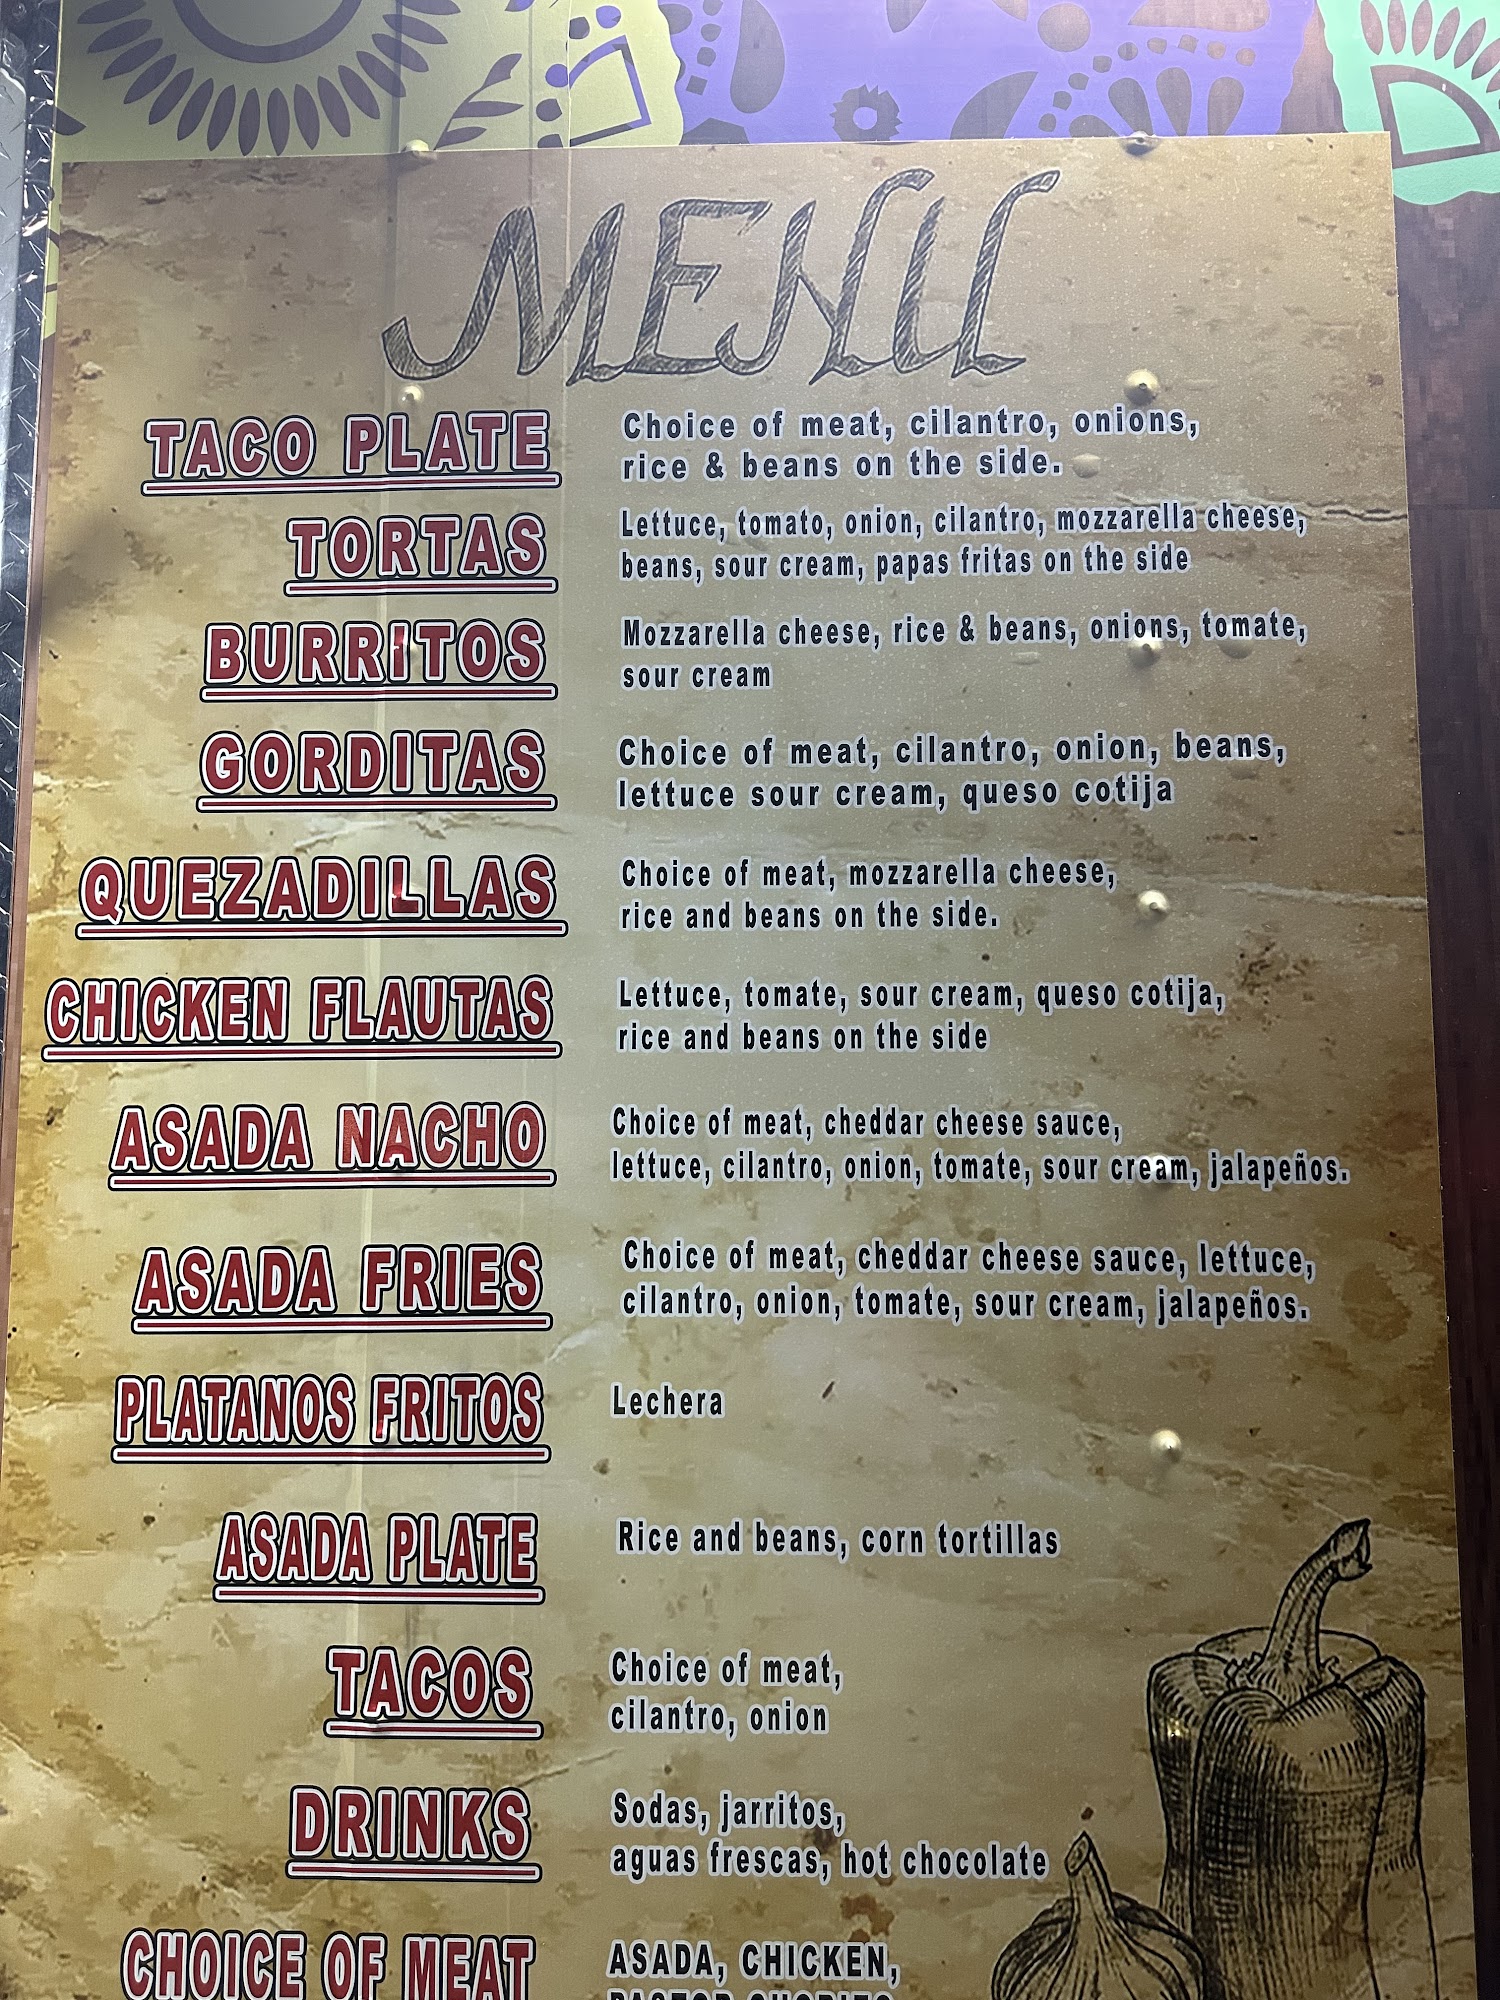 MENU
TACO PLATE
Choice of meat, cilantro, onions,
rice & beans on the side.
TORTAS
Lettuce, tomato, onion, cilantro, mozzarella cheese,
beans, sour cream, papas fritas on the side
BURRITOS
Mozzarella cheese, rice & beans, onions, tomate,
sour cream
GORDITAS
Choice of meat, cilantro, onion, beans,
lettuce sour cream, queso cotija
QUEZADILLAS
Choice of meat, mozzarella cheese,
rice and beans on the side.
CHICKEN FLAUTAS
Lettuce, tomate, sour cream, queso cotija,
rice and beans on the side
ASADA NACHO
Choice of meat, cheddar cheese sauce,
lettuce, cilantro, onion, tomate, sour cream, jalapeños.
ASADA FRIES
Choice of meat, cheddar cheese sauce, lettuce,
cilantro, onion, tomate, sour cream, jalapeños.
PLATANOS FRITOS
Lechera
ASADA PLATE
Rice and beans, corn tortillas
TACOS
Choice of meat,
cilantro, onion
DRINKS
Sodas, jarritos,
aguas frescas, hot chocolate
CHOICE OF MEAT
ASADA, CHICKEN,